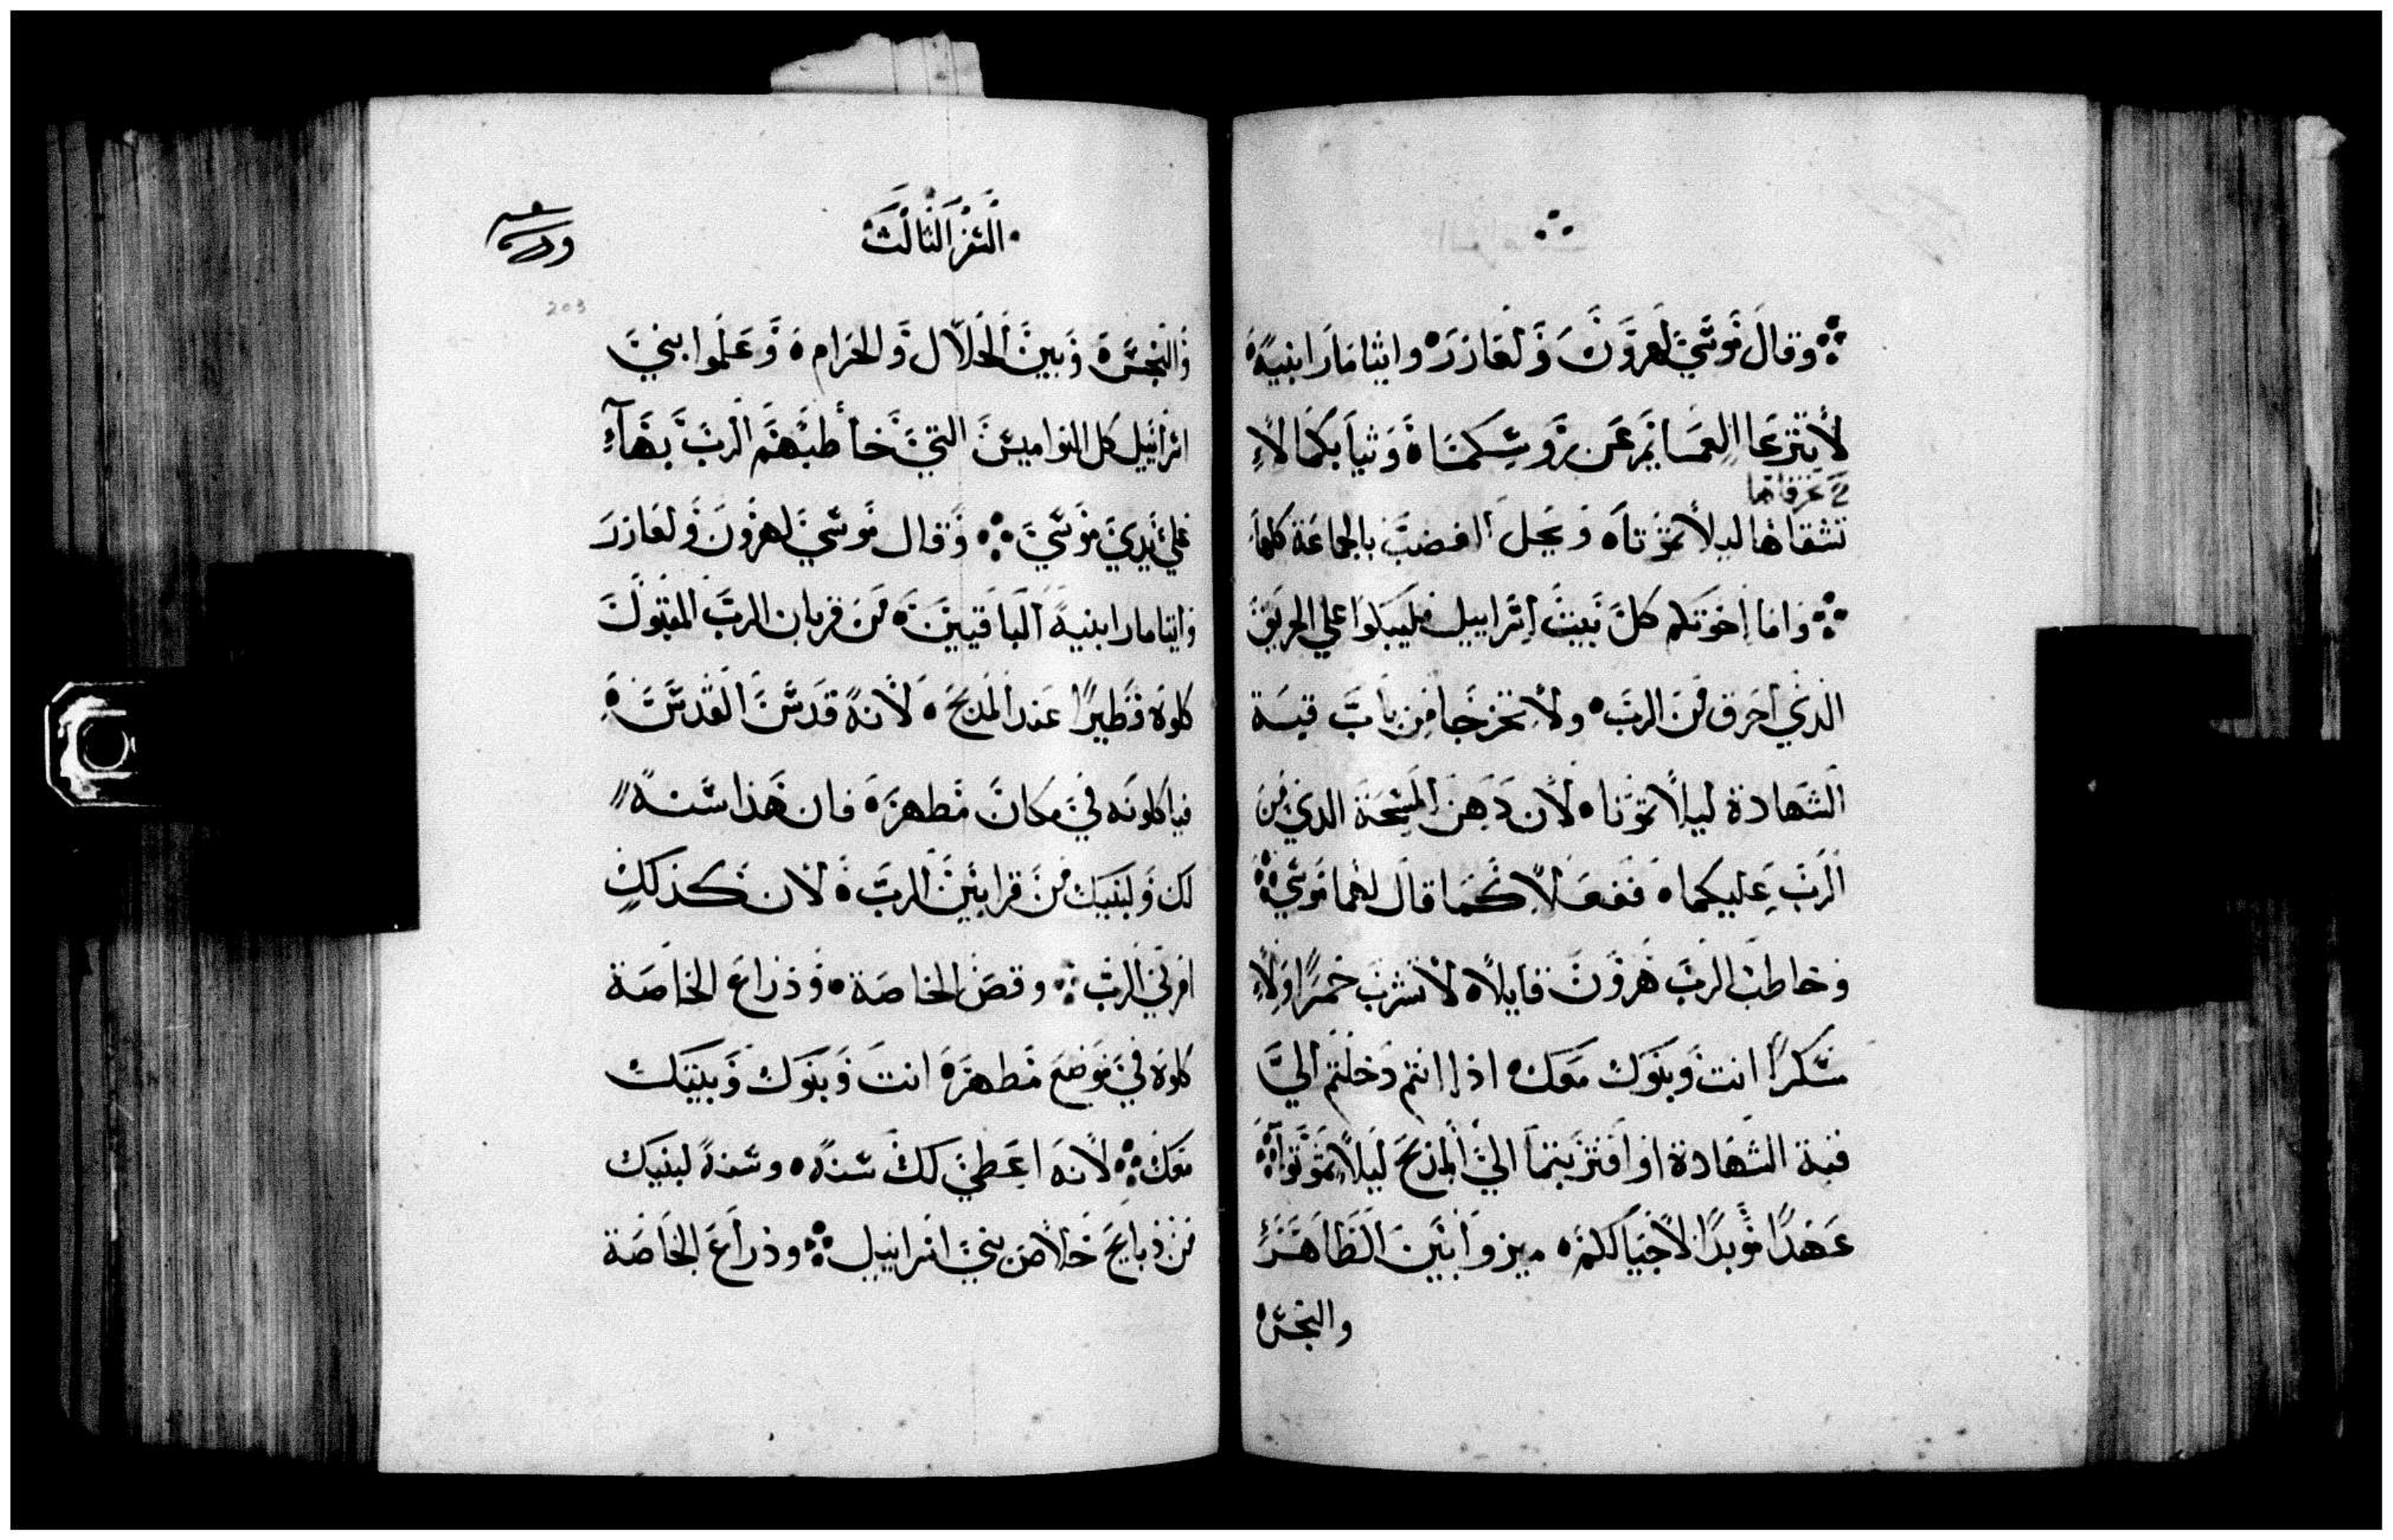 وقال موسي لهرون ولعازره وايتامار ابنيه
لا تنزعا العمايم عن روسكما وثيابكما لا
تعزقاها
تشقاها ليلا تموتا ويحل الغضب بالجماعة كلها
واما اخوتكم كل بيت اسراييل فليبكوا علي الحريق
الذي احرق من الرب ولا تخرجا من باب قبة
الشهادة ليلا تموتا لان دهن المسحة الذي من
الرب عليكما ففعلا كما قال لهما موسي
وخاطب الرب هرون قايلا لا تشرب خمرا ولا
سكرا انت وبنوك معك اذا انتم دخلتم الي
قبة الشهادة او اقتربتما الي المذبح ليلا تموتوا
عهدا موبدا لاجيالكم ميزوا بين الطاهر
والنجس
السفر الثالث
203
والنجس وبين الحلال والحرام وعلموا بني
اسراييل كل النواميس التي خاطبهم الرب بها
علي يدي موسي وقال موسي لهرون ولعازر
وايتامار ابنيه الباقيين من قربان الرب المقبول
كلوه فطيرا عند المذبح لانه قدس القدس
فياكلونه في مكان مطهر فان هذا سنة
لك ولبنيك من قرابين الرب لان كذلك
امرني الرب وقص الخاصة وذراع الخاصة
كلوه في موضع مطهر انت وبنوك وبنيك
معك لانه اعطي لك سنة وسنة لبنيك
من ذبايح خلاص بني اسراييل وذراع الخاصة